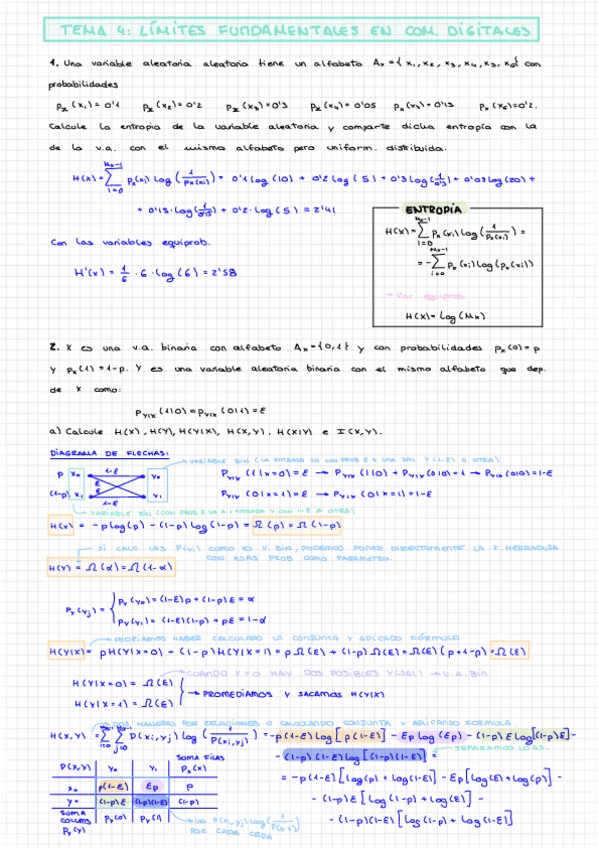 TEMA 4: LÍMITES FUNDAMENTALES EN COM. DIGITALES
1. Una variable aleatoria aleatoria tiene un alfabeto Ax = { x₁, x₂, x₃, x₄, x₅, x₆} con
probabilidades
px(x₁) = 0'1 px(x₂) = 0'2 px(x₃) = 0'3 px(x₄) = 0'05 px(x₅) = 0'15 px(x₆) = 0'2.
Calcule la entropía de la variable aleatoria y comparte dicha entropía con la
de la v.a. con el mismo alfabeto pero uniform. distribuida.
H(X) = Σ px(xi) log(1/px(xi)) = 0'1 log(10) + 0'2 log(5) + 0'3 log(1/0'3) + 0'05 log(20) +
+ 0'15·log(1/0'15) + 0'2·log(5) = 2'41
ENTROPÍA
H(X) = Σ px(xi) log(1/px(xi)) =
= -Σ px(xi) log(px(xi))
→ Var. equiprob.
H(X) = log(Mx)
Con las variables equiprob.
H'(X) = 1/6 · 6 · log(6) = 2'58
2. X es una v.a. binaria con alfabeto Ax = {0,1} y con probabilidades px(0) = p
y px(1) = 1-p. Y es una variable aleatoria binaria con el mismo alfabeto que dep.
de X como:
pY|X(1|0) = pY|X(0|1) = ε
a) Calcule H(X), H(Y), H(Y|X), H(X,Y), H(X|Y) e I(X,Y).
DIAGRAMA DE FLECHAS:
VARIABLE BIN (LA ENTRADA VA CON PROB ε A UNA SAL Y (1-ε) A OTRA)
p x₀ 1-ε y₀
ε
ε
(1-p) x₁ 1-ε y₁
PY|X(1|X=0) = ε → PY|X(1|0) + PY|X(0|0) = 1 → PY|X(0|0) = 1-ε
PY|X(0|X=1) = ε → PY|X(1|1) = 1-ε
VARIABLE BIN (CON PROB ε VA A 1 ENTRADA Y CON 1-ε A OTRA)
H(X) = -p log(p) - (1-p) log(1-p) = Ω(p) = Ω(1-p)
SI CALC. LAS P(yi) COMO ES V. BIN, PODEMOS PONER DIRECTAMENTE LA F. HERRADURA
CON ESAS PROB COMO PARÁMETRO.
H(Y) = Ω(α) = Ω(1-α)
PY(yj) = { PY(y₀) = (1-ε)p + (1-p)ε = α
PY(y₁) = (1-ε)(1-p) + pε = 1-α
PODRÍAMOS HABER CALCULADO LA CONJUNTA Y APLICADO FÓRMULA
H(Y|X) = pH(Y|X=0) + (1-p)H(Y|X=1) = pΩ(ε) + (1-p)Ω(ε) = Ω(ε)(p+1-p) = Ω(ε)
CUANDO X=0 HAY DOS POSIBLES Y(SAL) → V.A. BIN
H(Y|X=0) = Ω(ε)
H(Y|X=1) = Ω(ε)
→ PROMEDIAMOS Y SACAMOS H(Y|X)
DOS MANERAS POR RELACIONES O CALCULANDO CONJUNTA Y APLICANDO FÓRMULA.
H(X,Y) = ΣΣ P(xi,yj) log(1/P(xi,yj)) = -p(1-ε)log[p(1-ε)] - εp log(εp) - (1-p)ε log[(1-p)ε] -
- (1-p)(1-ε)log[(1-p)(1-ε)] =
SEPARAMOS LOGS.
P(X,Y) y₀ y₁ SUMA FILAS Px(X)
x₀ p(1-ε) εp p
(1-p)ε (1-p)(1-ε) (1-p)
SUMA COLUMNAS PY(Y) PY(0) PY(1)
UN P(xi,yj) log(1/P(X,Y))
POR CADA CELDA
= -p(1-ε)[log(p) + log(1-ε)] - εp[log(ε) + log(p)] -
- (1-p)ε[log(1-p) + log(ε)] -
- (1-p)(1-ε)[log(1-p) + log(1-ε)]